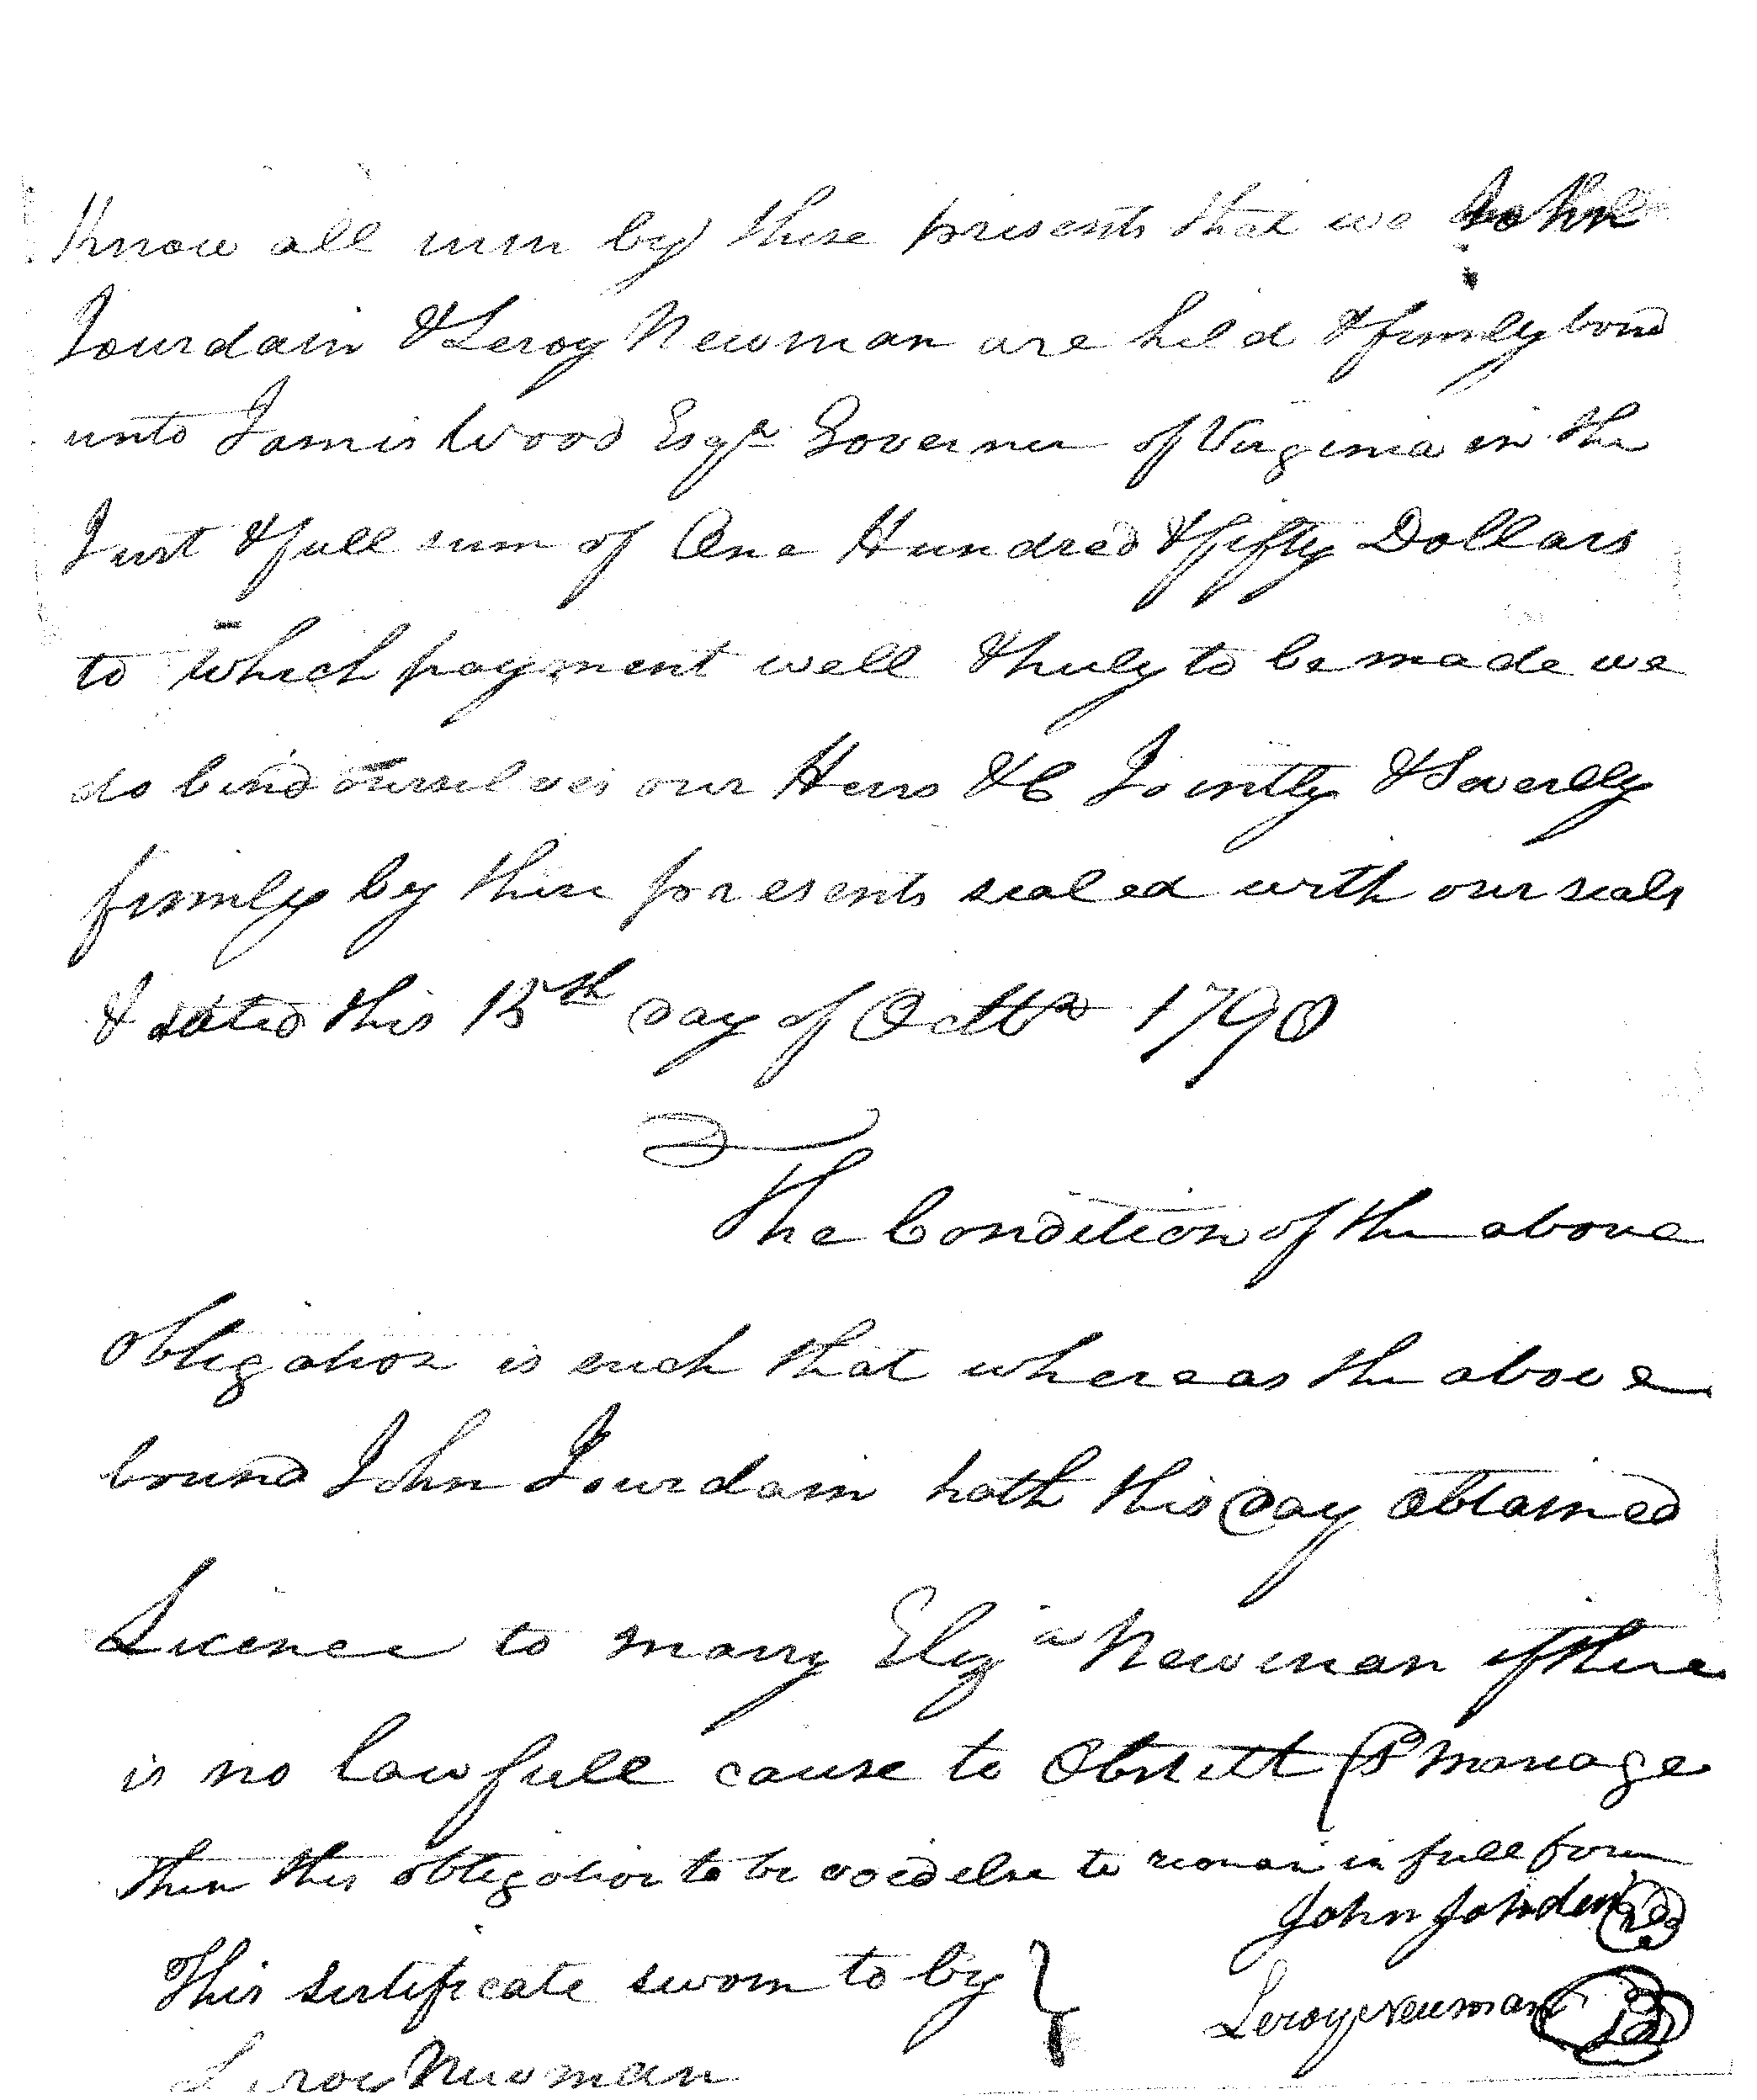 Know all men by these presents that we John
Jourdain & Leroy Newman are held & firmly bond
unto James Wood Esqr Governer of Virginia in the
Just & full sum of One Hundred & fifty Dollars
to which payment well & truly to be made we
do bind ourselves our Heirs &C Jointly & Severlly
firmly by these presents sealed with our seals
& dated this 15th day of Octbr 1790
The Condition of the above
obligation is such that whereas the above
bound John Jourdain hath this day obtained
Licence to marry Eliza Newman if there
is no lawfull cause to Obstrtt Marriage
then this obligation to be void else to remain in full force
John Jorden
This sertificate sworn to by
Leroy Newman
Leroy Newman